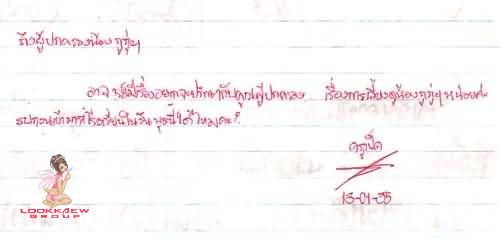 ถึงผู้ปกครองน้องกุ๊กๆ
อาจารย์มีเรื่องอยากจะปรึกษากับคุณผู้ปกครอง เรื่องการเลี้ยงดูน้องกุ๊กๆ หน่อยค่ะ
รบกวนเข้ามาที่โรงเรียนในวันพุธนี้ได้ไหมคะ?
ครูเป็ด
13-01-35
LOOKKAEW
GROUP